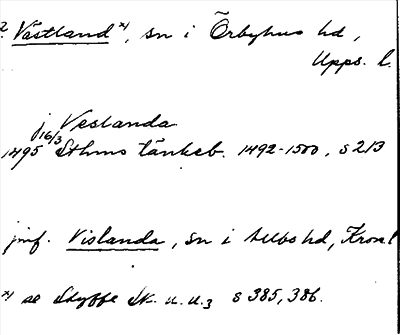 2. Västland x), sn i Örbyhus hd,
Upps. l.
j Veslanda
1495 16/3 Sthms tänkeb. 1492-1500, s 213
jmf. Vislanda, sn i Allbo hd, Kron l
x) se Styffe Sk. u. u.3 s 385, 386.